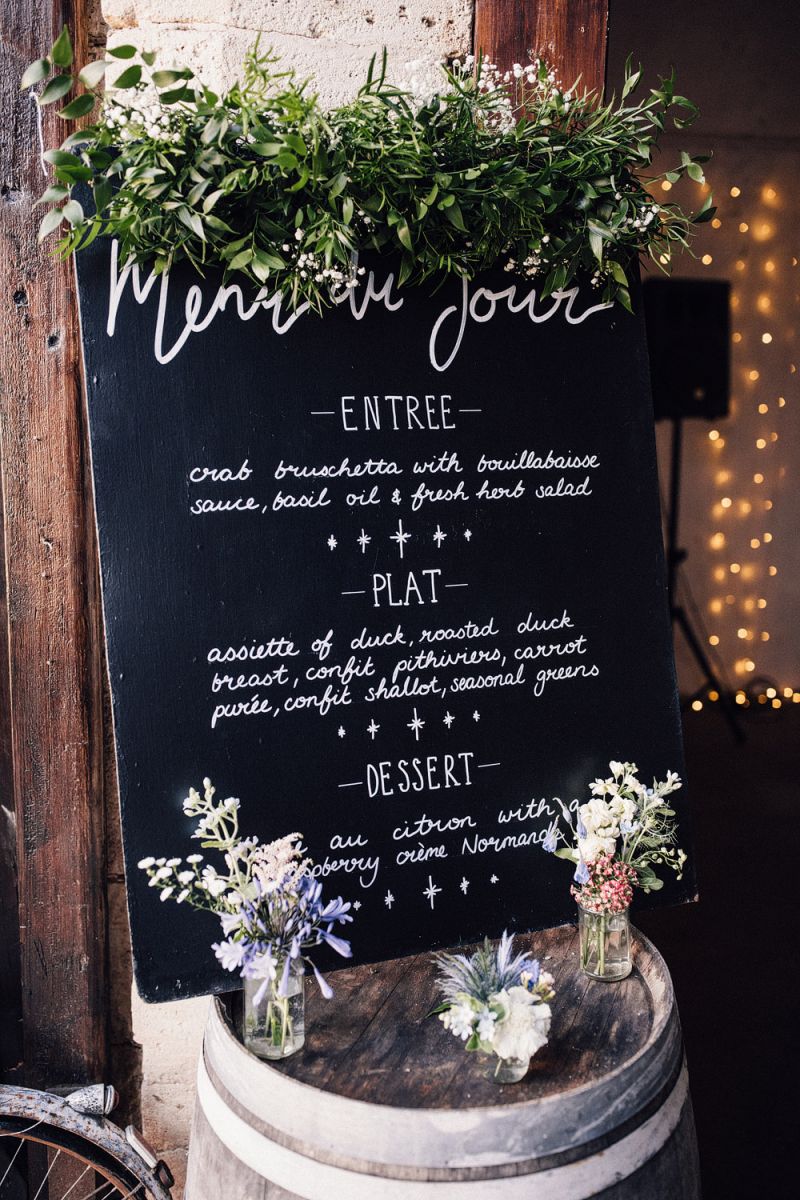 Menu du Jour
-ENTREE-
crab bruschetta with bouillabaisse
sauce, basil oil & fresh herb salad
-PLAT-
assiette of duck, roasted duck
breast, confit pithiviers, carrot
purée, confit shallot, seasonal greens
-DESSERT-
au citron with a
crème Normande